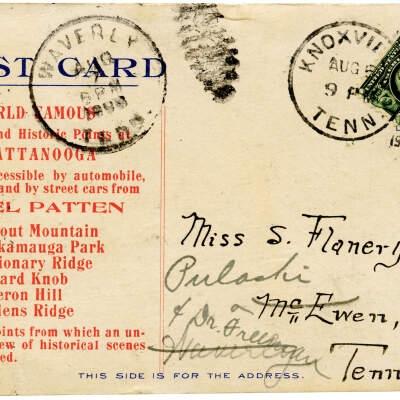 ST CARD
WAVERLY
AUG
6 PM
TENN.
KNOXVIL
AUG
9 P
TENN.
19
RLD FAMOUS
nd Historic Points of
ATTANOOGA
cessible by automobile,
and by street cars from
EL PATTEN
out Mountain
kamauga Park
ionary Ridge
ard Knob
eron Hill
lens Ridge
oints from which an un-
ew of historical scenes
ed.
Miss S. Flanery
Pulaski
Mc Ewen,
% Dr.
Waverly
Tenn
THIS SIDE IS FOR THE ADDRESS.